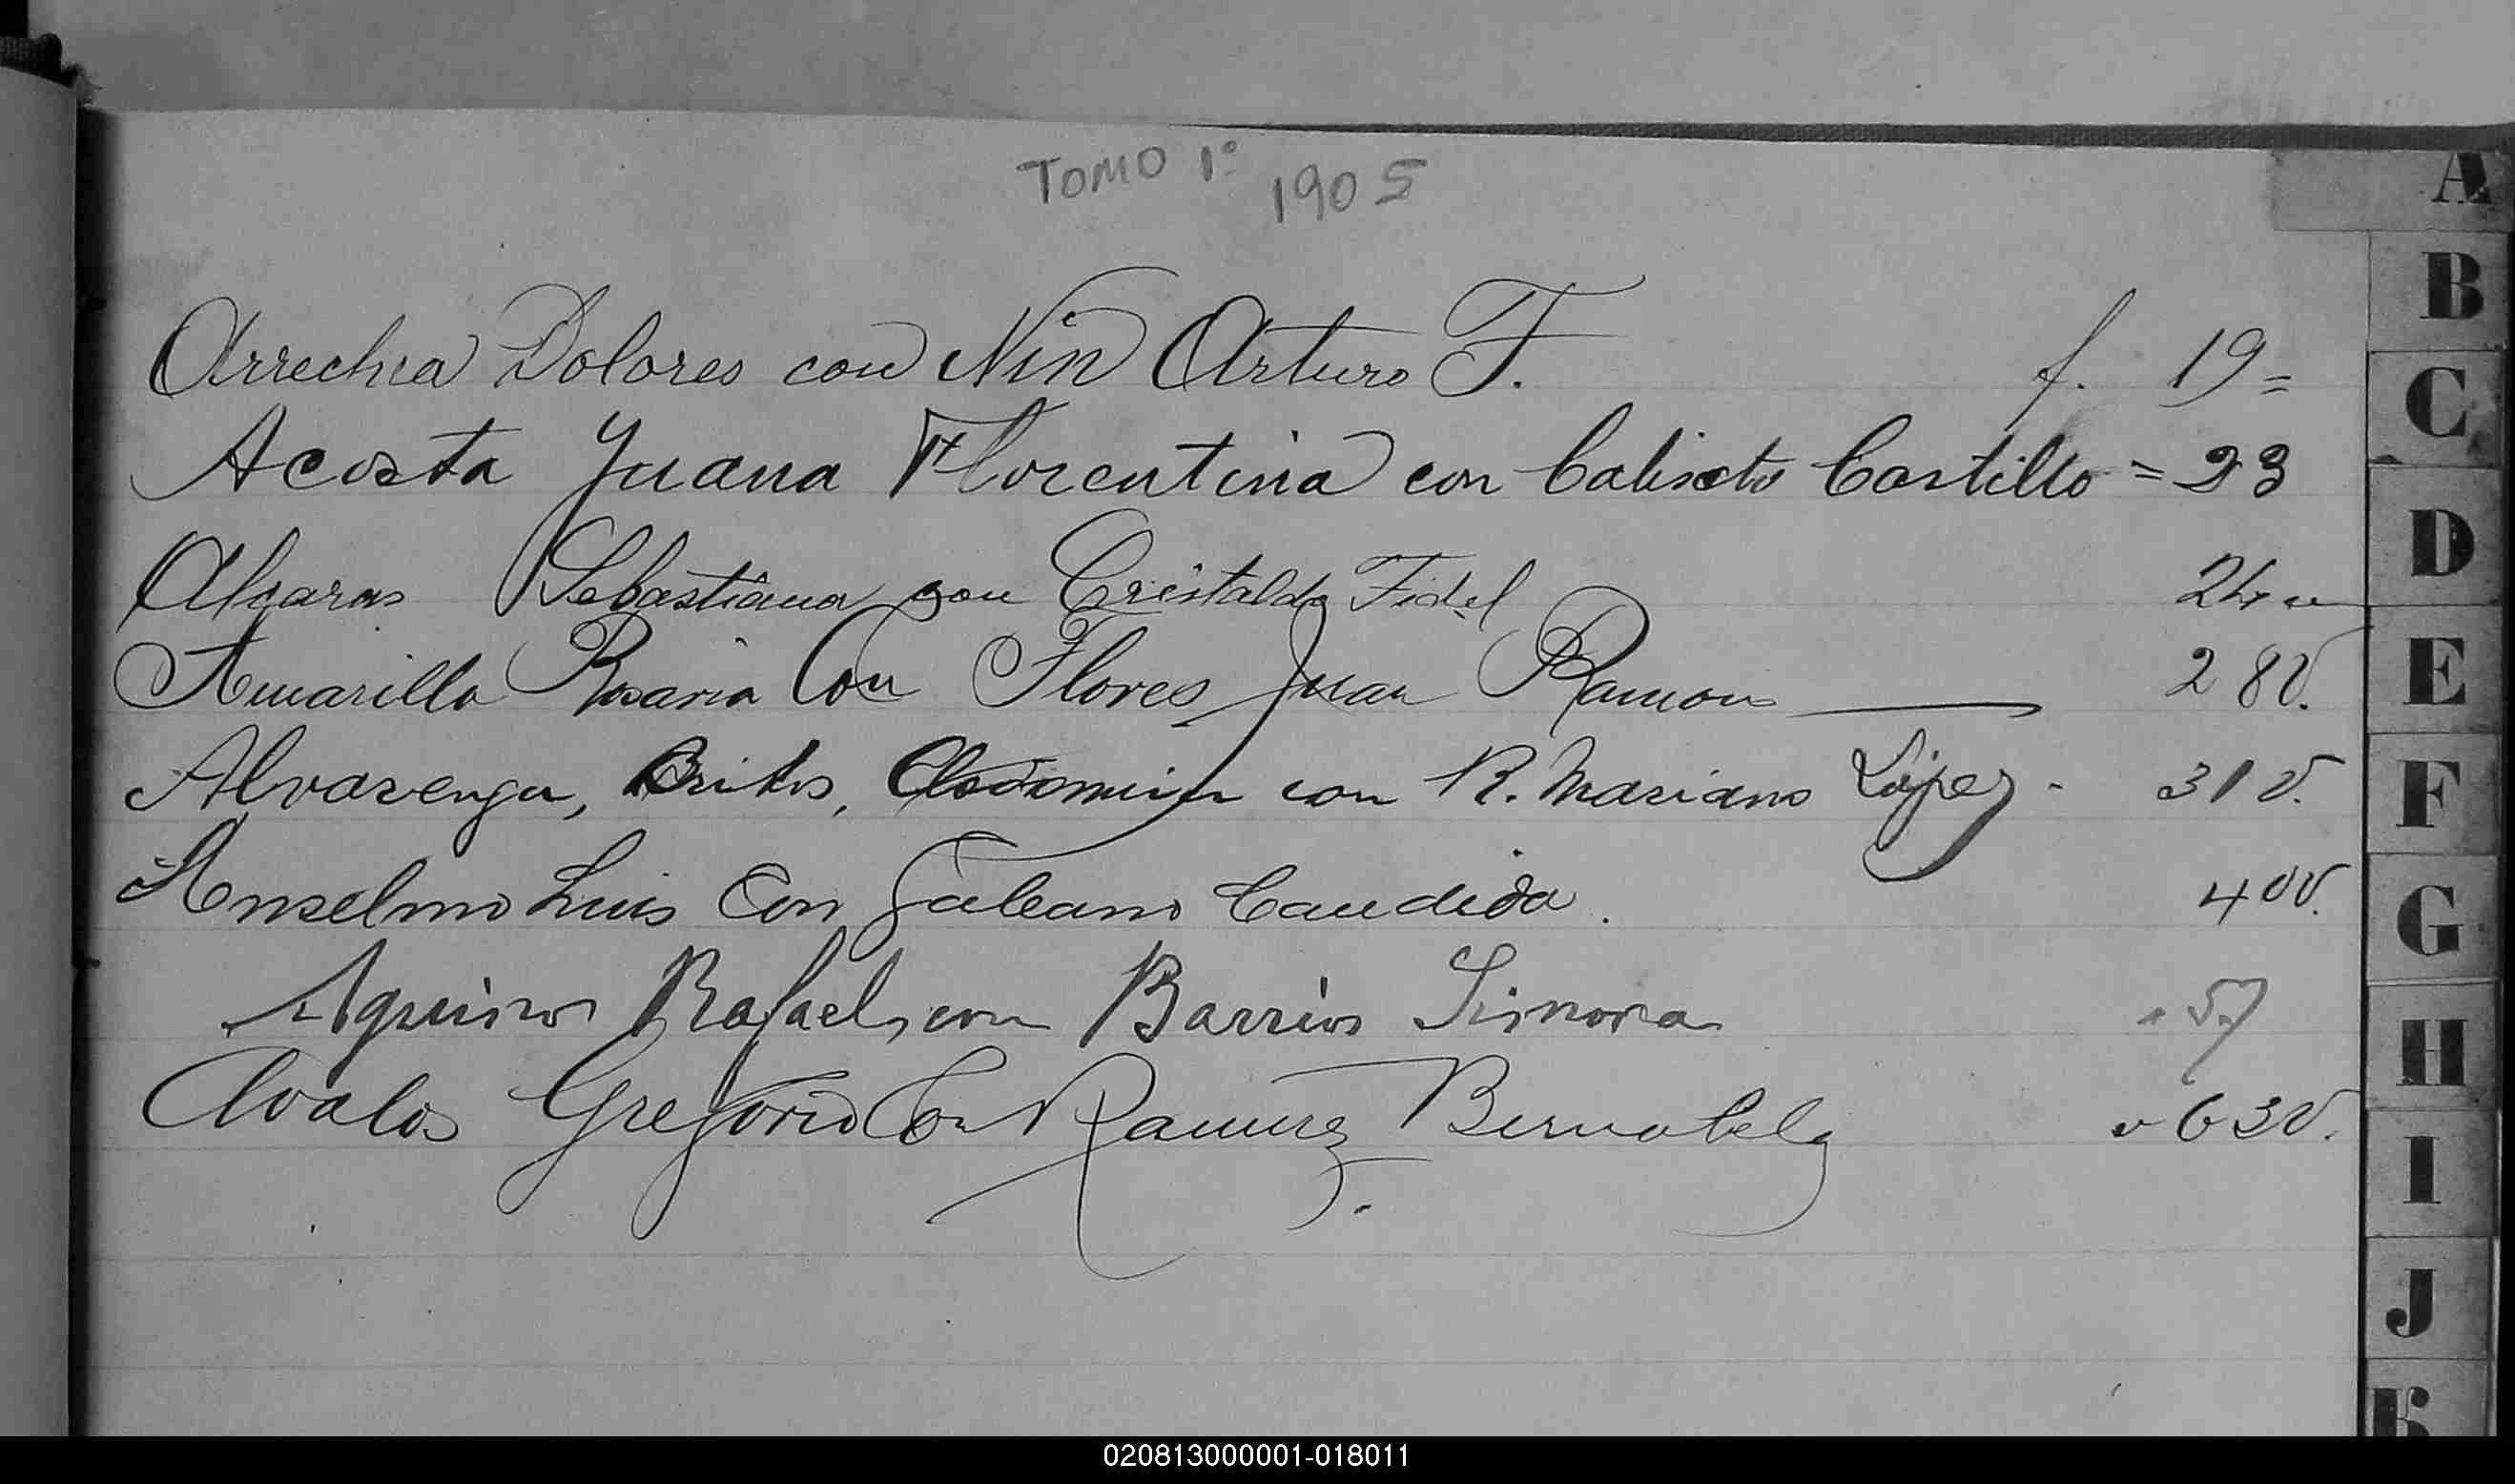 TOMO 1º 1905
A
B
Arrechea Dolores con Nin Arturo F. f. 19=
C
Acosta Juana Florentina con Calixto Castillo = 23
D
Alcaras Sebastiana con Cristaldo Fidel 24
E
Amarilla Rosaria Con Flores Juan Ramon 28 v.
F
Alvarenga, Brites, Clodomira con R. Mariano López - 31 v.
G
Anselmo Luis Con Galeano Candida. 40 v.
H
Aquino Rafael, con Barrios Simona " 57
I
Avalos Gregorio Con Ramirez Bernabela " 63 v.
J
K
020813000001-018011